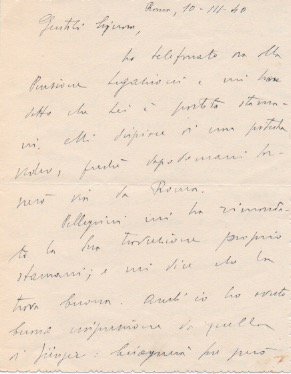 Roma, 10-III-40
Gentile Signora,
ho telefonato ora alla
Pensione e mi han
detto che Lei è partita stama-
ni. Mi dispiace di non poterla
vedere, perché dopodomani
via da Roma.
Pellegrini mi ha rimanda-
to la sua traduzione proprio
stamani; e mi dice che la
trova buona. Anch'io ho avuto
buona impressione da quella
di Jünger: bisognerà però